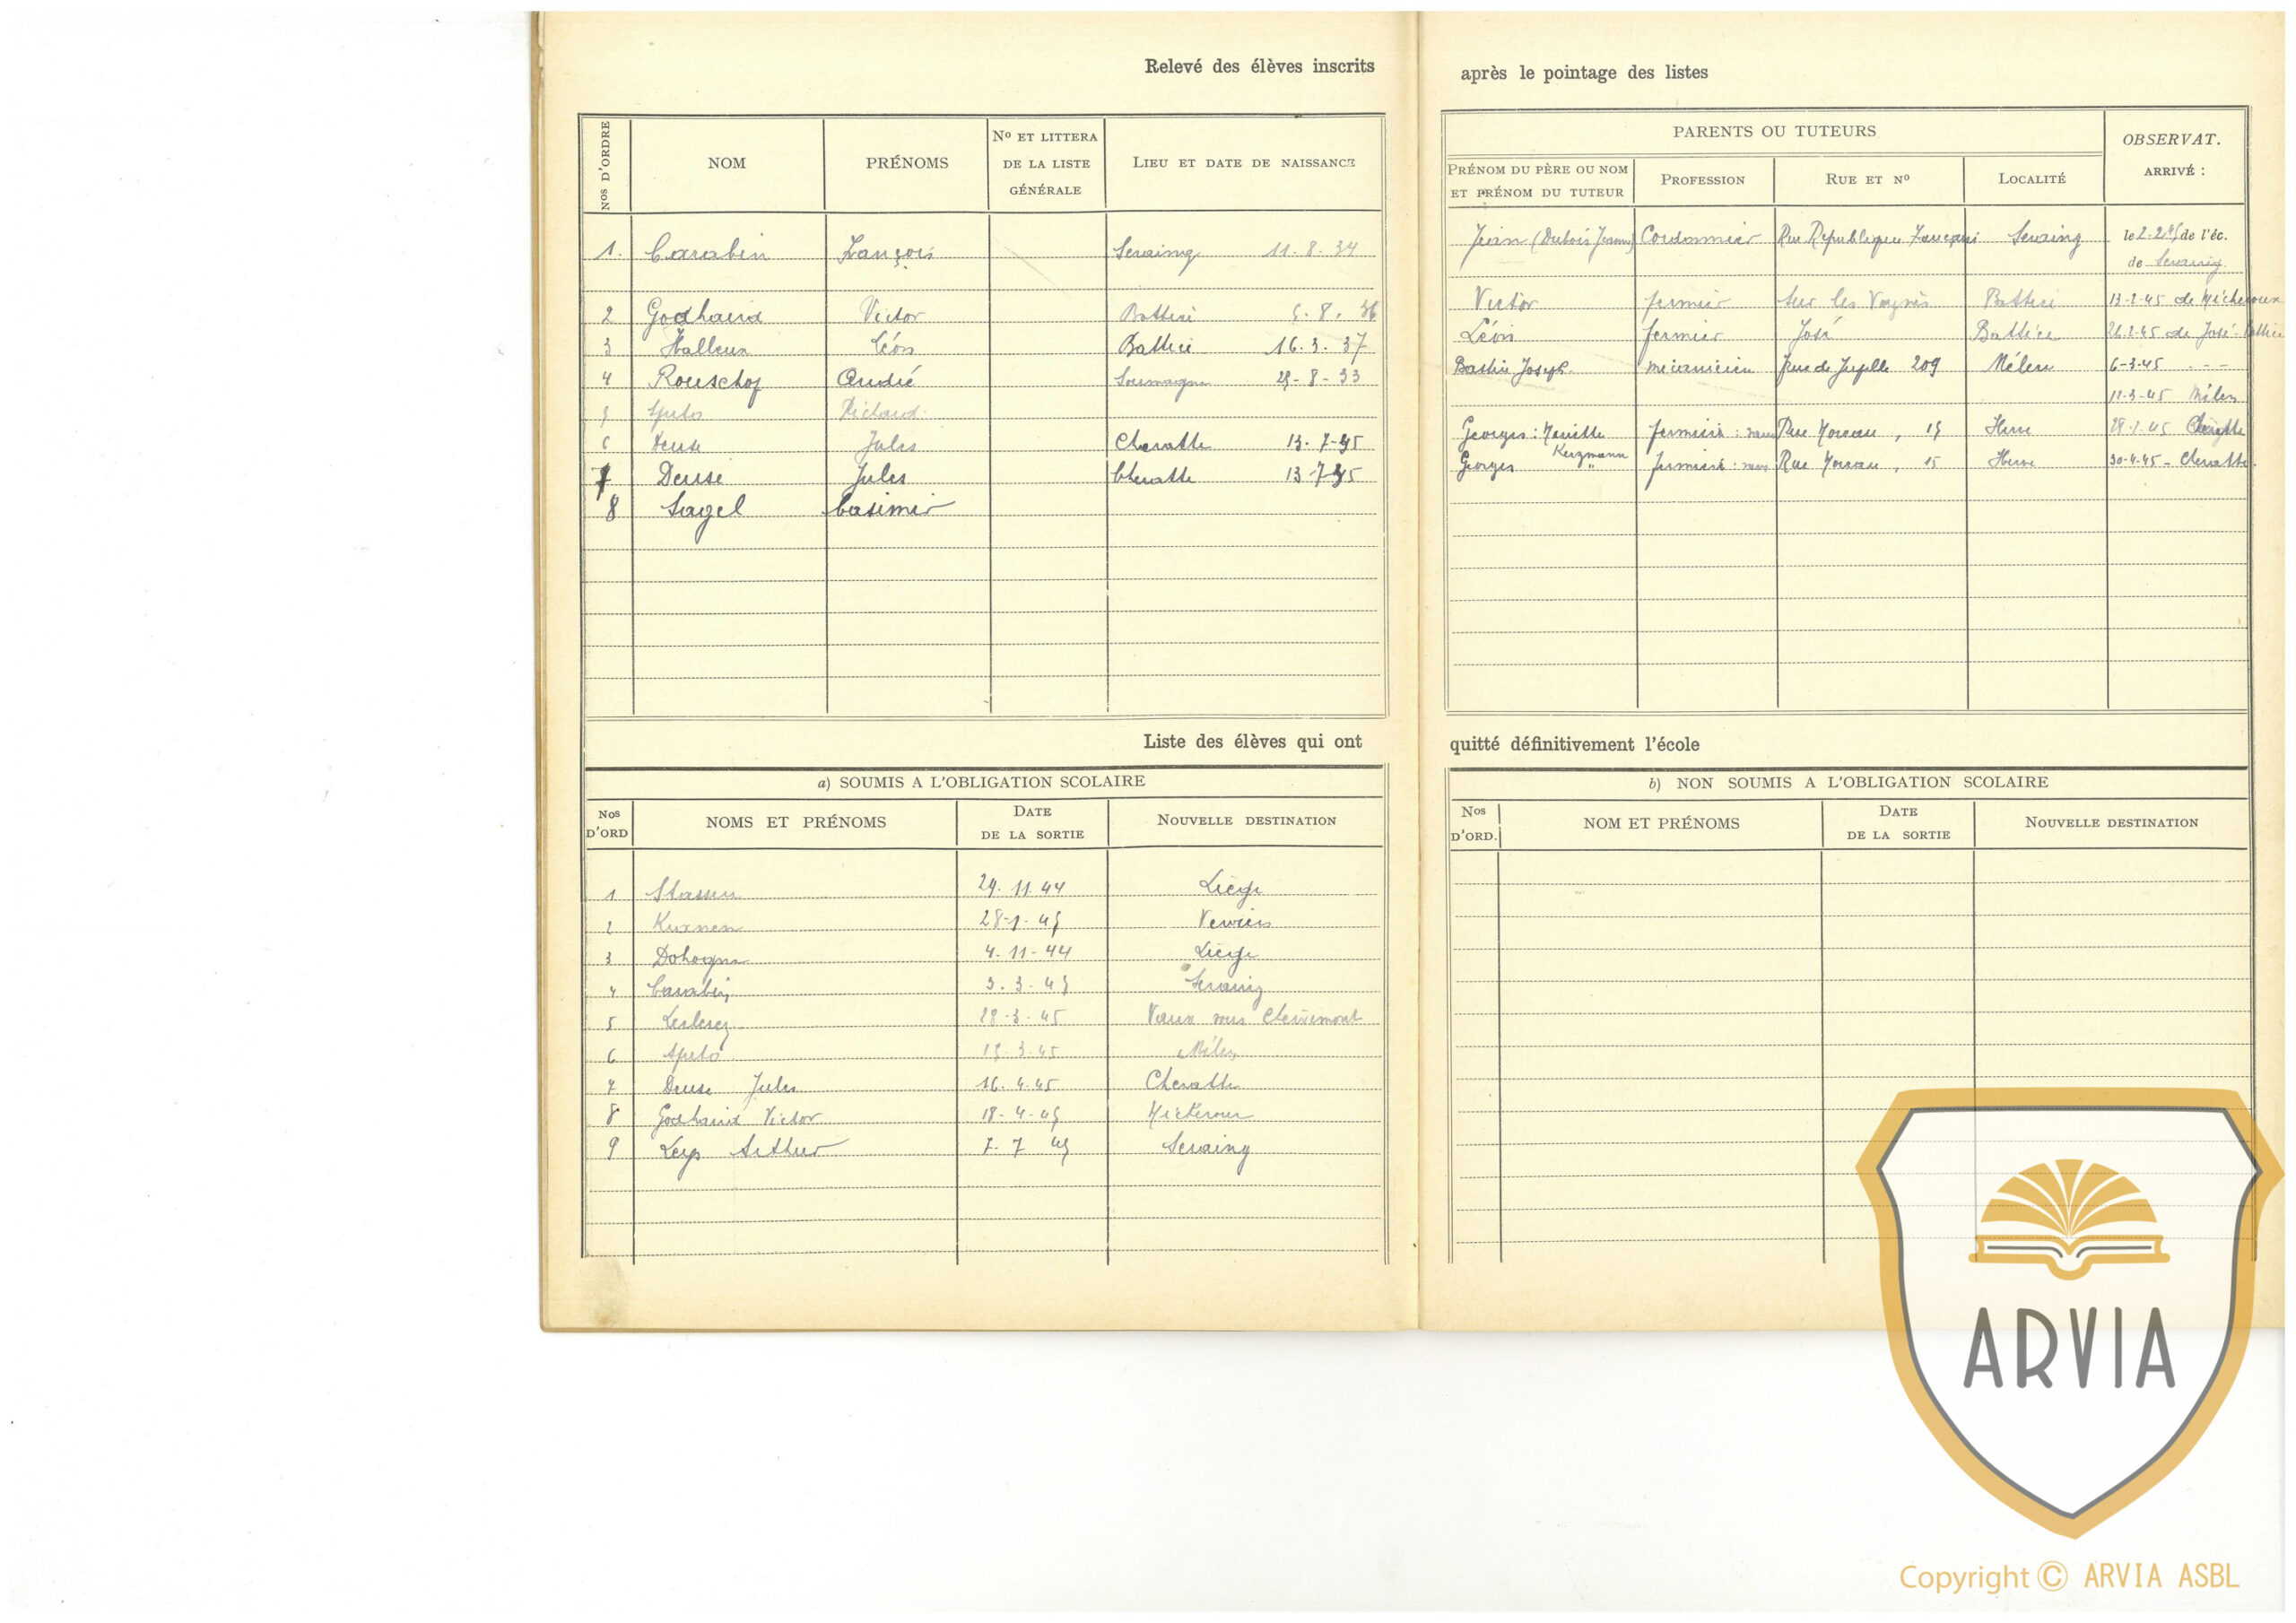 Relevé des élèves inscrits après le pointage des listes
Nos D'ORDRE NOM PRÉNOMS No ET LITTERA DE LA LISTE GÉNÉRALE LIEU ET DATE DE NAISSANCE
PARENTS OU TUTEURS
PRÉNOM DU PÈRE OU NOM ET PRÉNOM DU TUTEUR PROFESSION RUE ET No LOCALITÉ OBSERVAT. ARRIVÉ :
1. Carabin François Seraing 11.8.34 Jean (Dubois Jeanne) Cordonnier Rue République Française Seraing le 2.2.45 de l'éc.
de Seraing
2 Godhaird Victor Battice 8. 36 Victor fermier sur les Battice 13-2-45 de Micheroux
3 Halleux Léon Battice 16.3.37 Léon fermier José Battice 45 de José-Battice
4 Rouschop André Soumagne 8-33 Bastin Joseph mécanicien rue de Jupille 209 Mélen 6-3-45 - - -
5 Richard 45 Mélen
6 Deuse Jules Cheratte 13-7-35 Georges : fermière Rue Moreau, 15 Herve 45 Cheratte
Kerzmann
7 Deuse Jules Cheratte 13 7 35 Georges " fermière Rue Moreau, 15 Herve 30-4-45 - Cheratte.
8 Sagel Casimir
Liste des élèves qui ont quitté définitivement l'école
a) SOUMIS A L'OBLIGATION SCOLAIRE
Nos D'ORD NOMS ET PRÉNOMS DATE DE LA SORTIE NOUVELLE DESTINATION
1 Stassen 29.11.44 Liège
2 28-1-45 Verviers
3 Dohogne 4-11-44 Liège
4 Carabin 3.3.45 Seraing
5 Leclercq 28-3-45 Vaux sous Chèvremont
6 15.3.45 Mélen
7 Deuse Jules 16.4.45 Cheratte
8 Godhaird Victor 18-4-45 Micheroux
9 Leys Arthur 7-7 45 Seraing
b) NON SOUMIS A L'OBLIGATION SCOLAIRE
Nos D'ORD. NOM ET PRÉNOMS DATE DE LA SORTIE NOUVELLE DESTINATION
ARVIA
Copyright © ARVIA ASBL